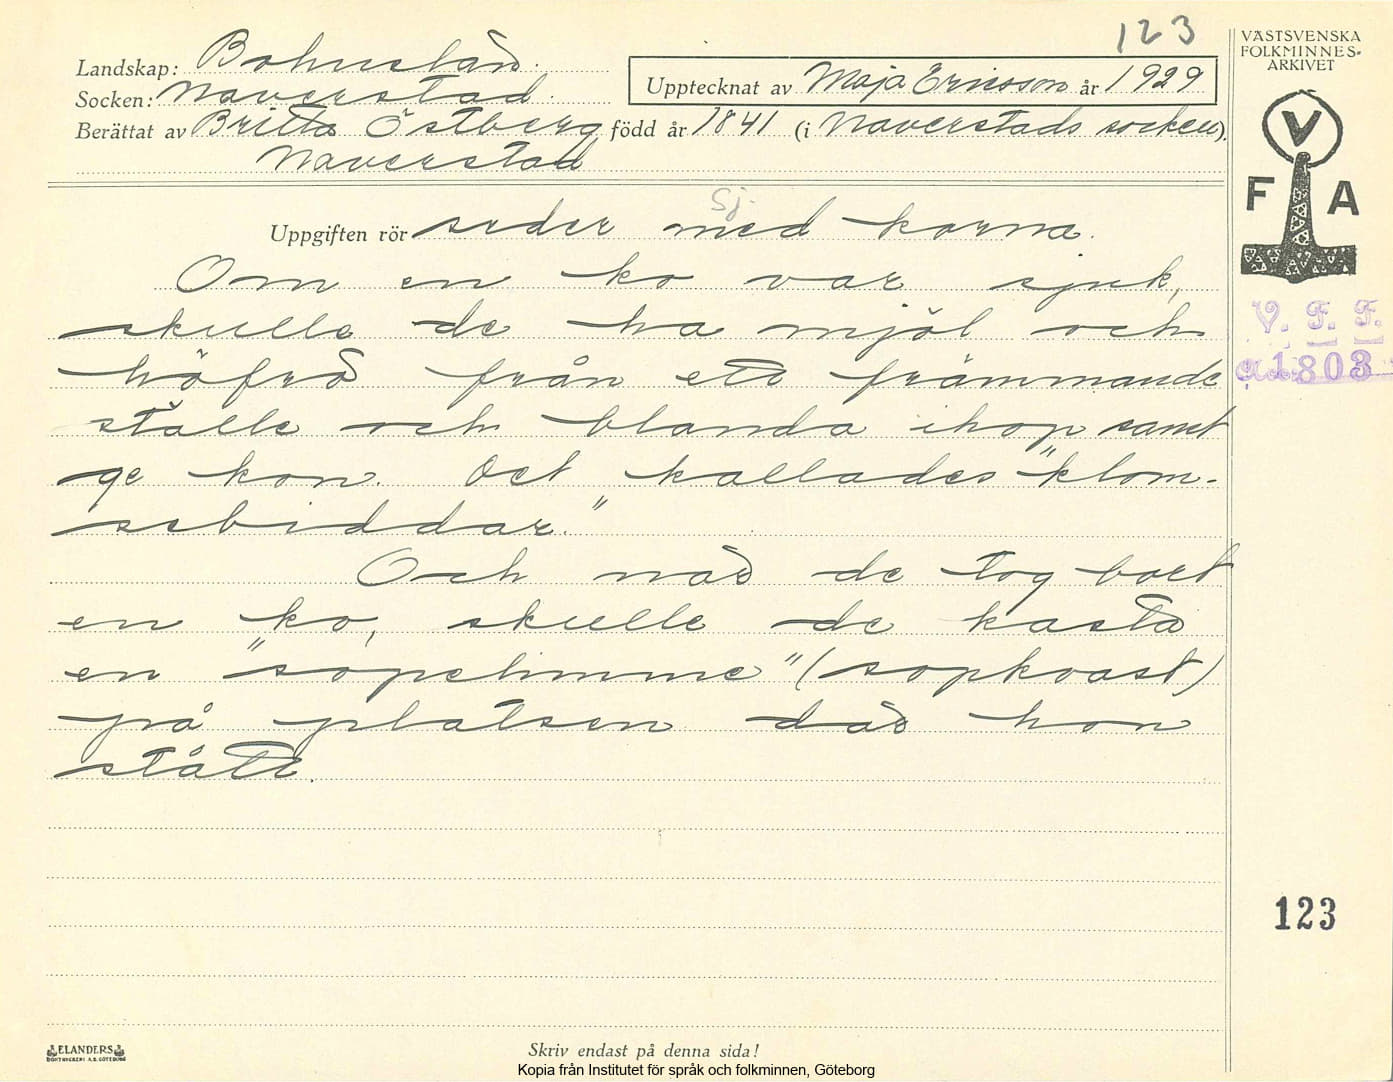 123
Landskap: Bohuslän.
Socken: Naverstad.
Upptecknat av Maja Ericsson år 1929
Berättat av Britta Östberg född år 1841 (i Naverstads socken).
Naverstad
VÄSTSVENSKA
FOLKMINNES-
ARKIVET
V
F A
Sj.
Uppgiften rör seder med korna.
Om en ko var sjuk,
skulle de ha mjöl och
höfrö från ett främmande
ställe och blanda ihop samt
ge kon. Det kallades "klom-
sebiddar."
Och när de tog bort
en ko, skulle de kasta
en "sopelimme" (sopkvast)
på platsen där hon
stått.
V. F. F.
1803
123
ELANDERS
BOKTRYCKERI A.B. GÖTEBORG
Skriv endast på denna sida!
Kopia från Institutet för språk och folkminnen, Göteborg